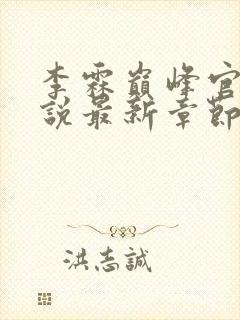 李霖巔峰官
說最新章節
洪志誠